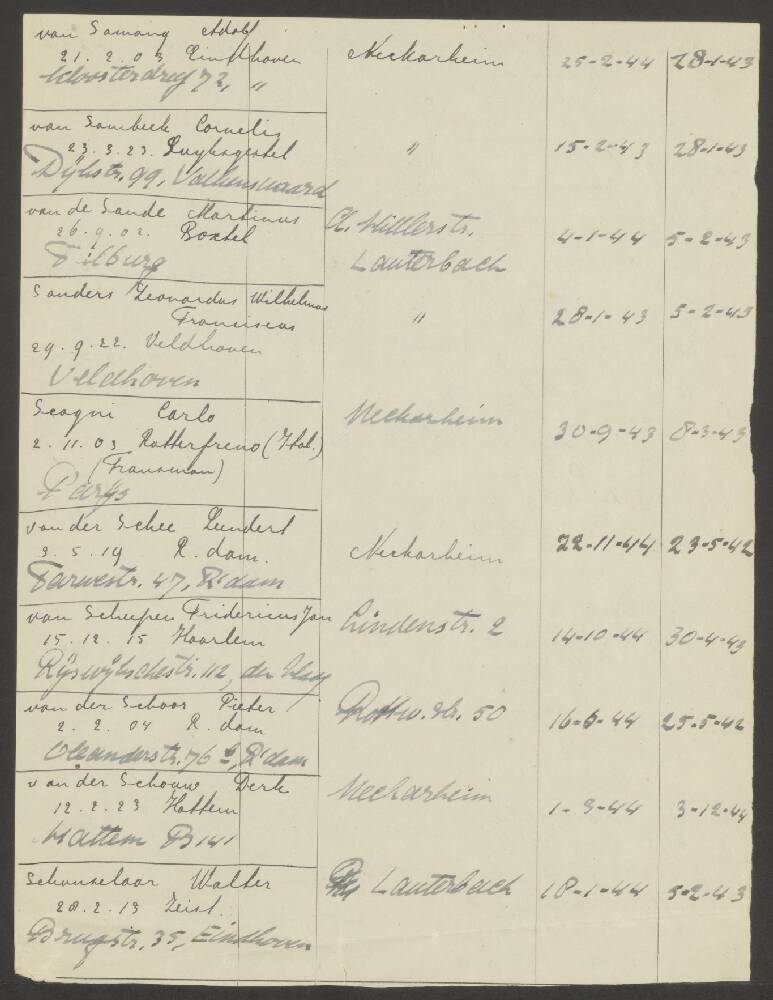 van Samang Adolf
21.2.03 Eindhoven Neckarheim 25-2-44 28-1-43
Kloosterdreef 72, "
van Sambeek Cornelis
23.3.23. Luyksgestel " 15-2-43 28-1-43
Dijkstr. 99, Valkenswaard
van de Sande Martinus
26.9.02. Boxtel 4-1-44 5-2-43
Tilburg Lauterbach
Sanders Leonardus Wilhelmus
Franciscus " 28-1-43 5-2-43
29.9.22. Veldhoven
Veldhoven
Scagni Carlo Neckarheim
2.11.03 Rottefreno (Ital.) 30-9-43 8-3-43
(Fransman)
Parijs
van der Schee Leendert
3.5.19 R.dam. Neckarheim 22-11-44 23-5-42
Tarwestr. 47, R'dam
van Scheepen Fridericus Jan Lindenstr. 2
15.12.15 Haarlem 14-10-44 30-4-43
Rijswijkschestr. 112, den Haag
van der Schoor Pieter Rottw. str. 50
2.2.04 R.dam 16-6-44 25-5-42
Oleanderstr. 76 b, R'dam
van der Schouw Derk Neckarheim
12.2.23 Hattem 1-3-44 3-12-44
Hattem B 141
Schouselaar Walter Lauterbach 18-1-44 5-2-43
28.2.13 Zeist.
Brugstr. 35, Eindhoven